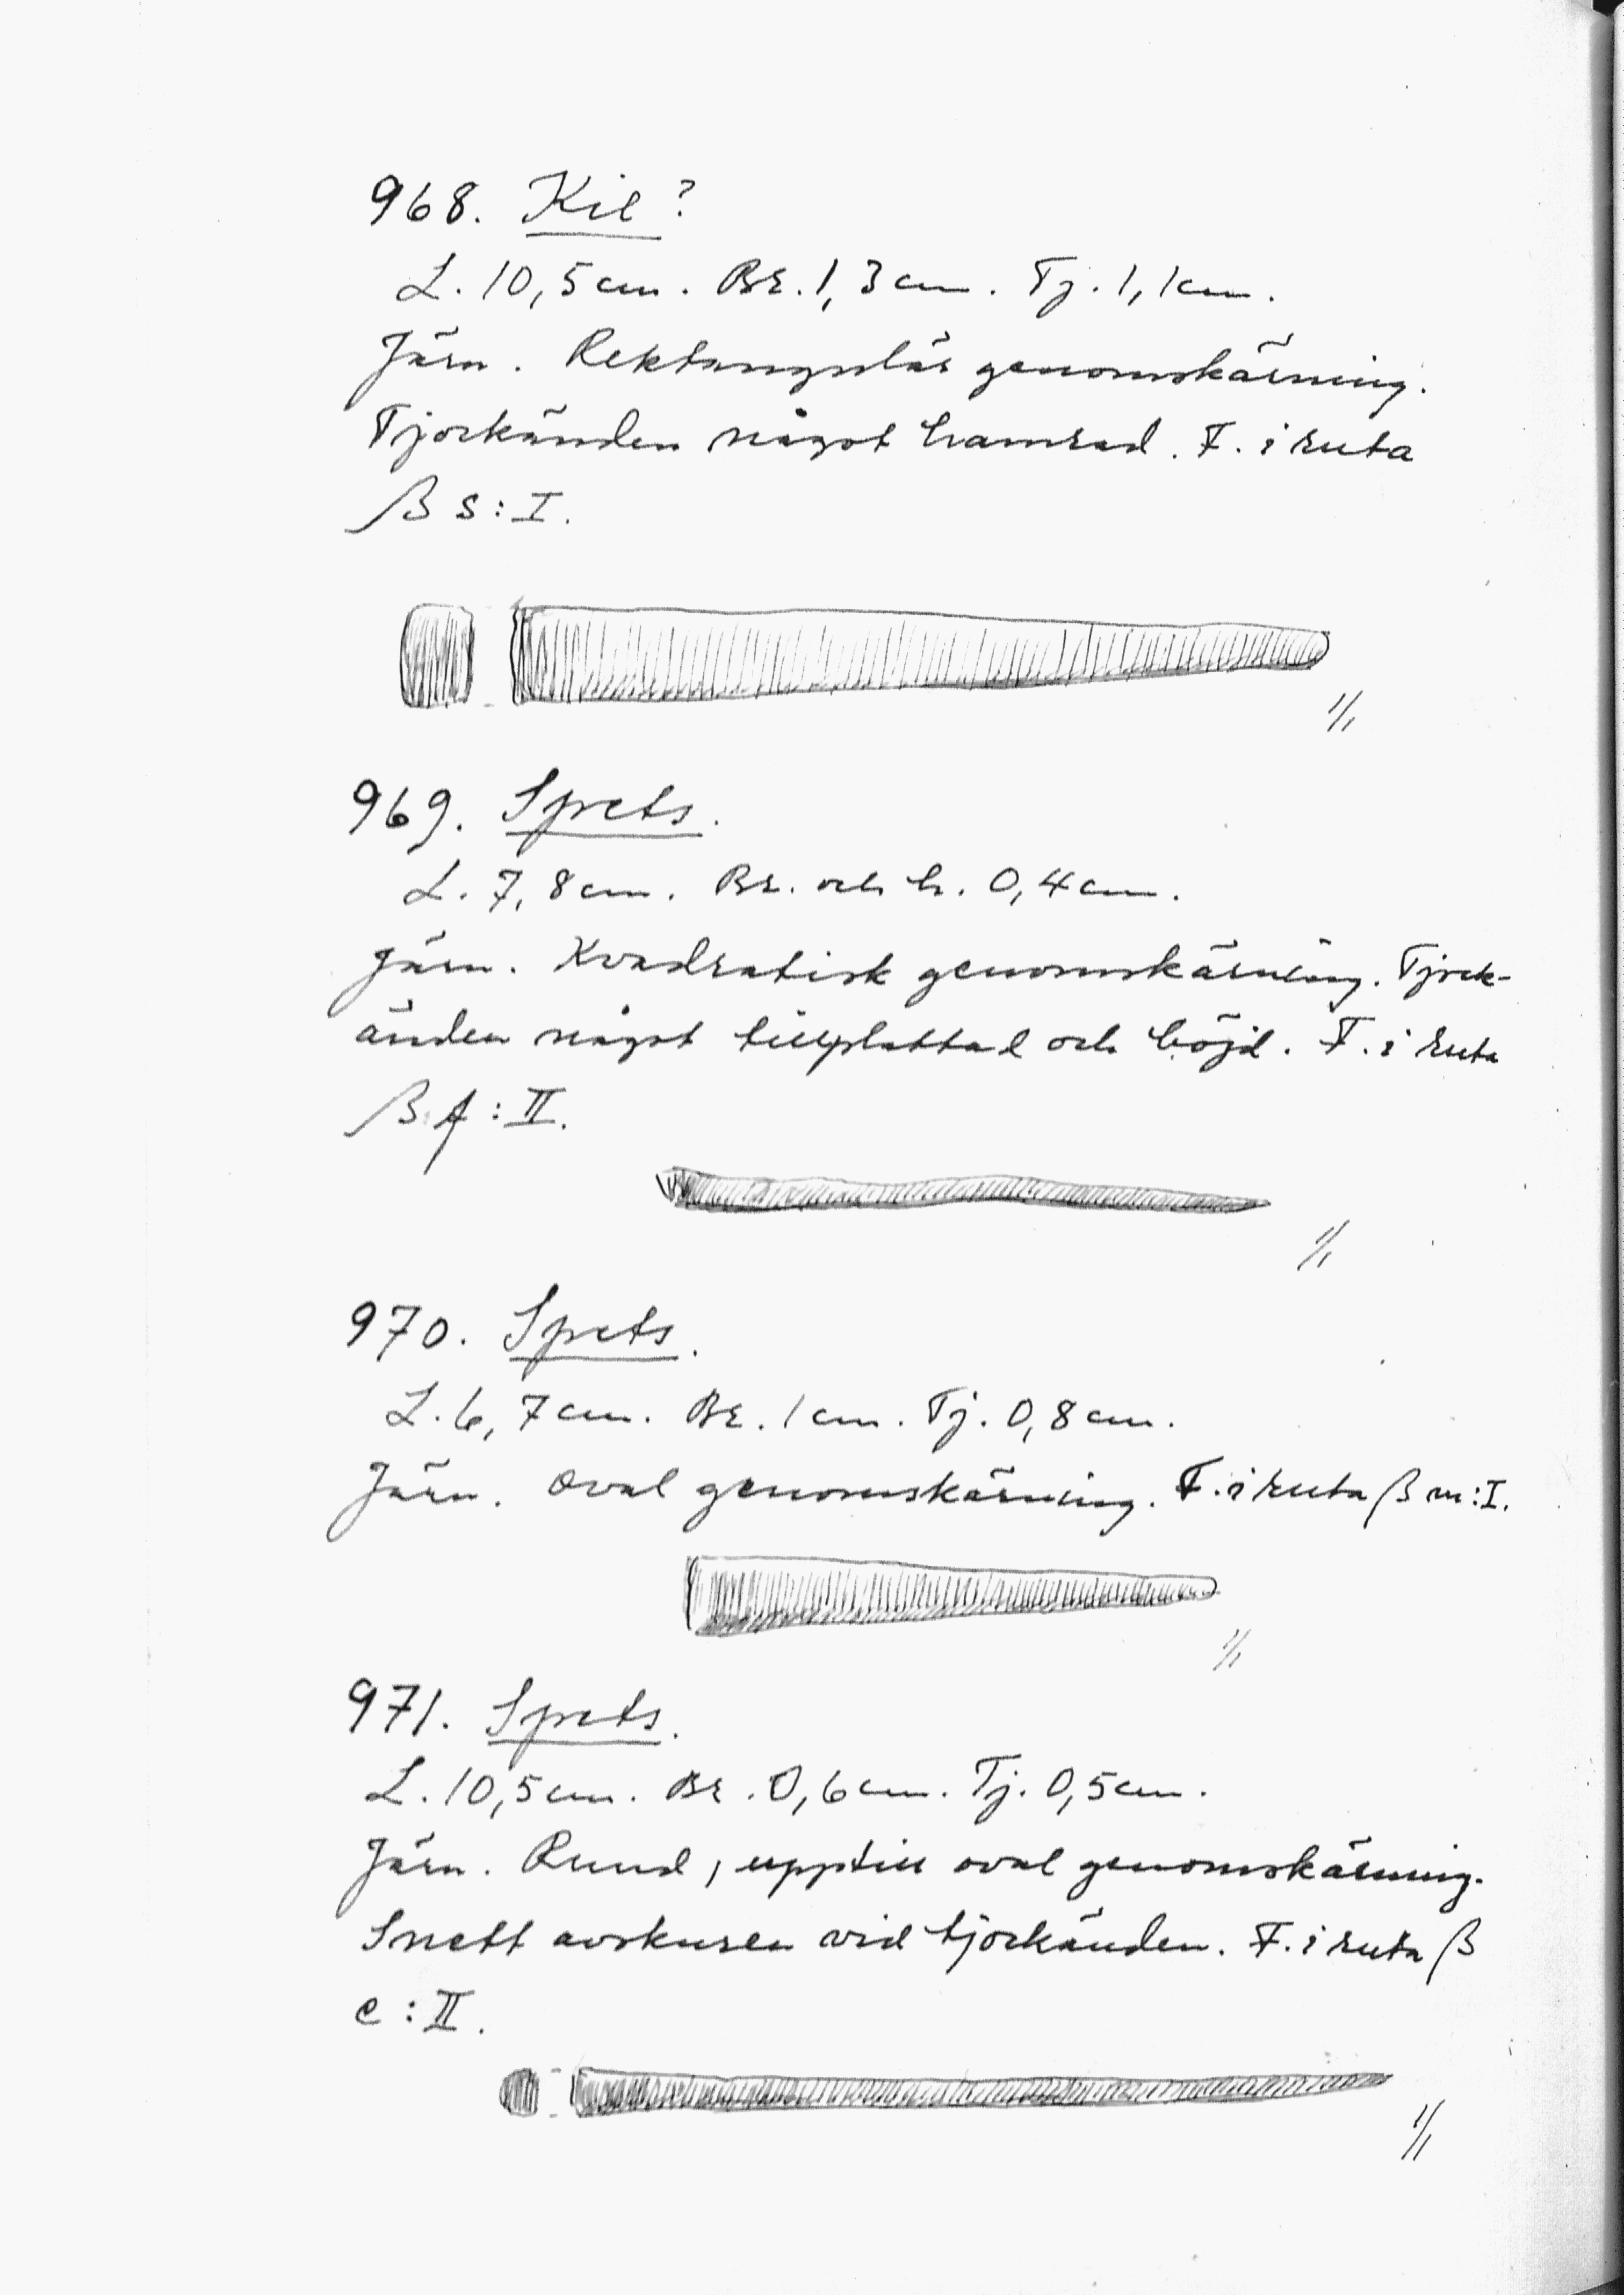 968. Kil?
L. 10,5 cm. Br. 1,3 cm. Tj. 1,1 cm.
Järn. Rektangulär genomskärning.
Tjockänden något hamrad. F. i ruta
β s : I.
1/1
969. Spets.
L. 7,8 cm. Br. och h. 0,4 cm.
Järn. Kvadratisk genomskärning. Tjock-
änden något tillplattad och böjd. F. i ruta
β f : II.
1/1
970. Spets.
L. 6,7 cm. Br. 1 cm. Tj. 0,8 cm.
Järn. Oval genomskärning. F. i ruta β m : I.
1/1
971. Spets.
L. 10,5 cm. Br. 0,6 cm. Tj. 0,5 cm.
Järn. Rund, upptill oval genomskärning.
Snett avskuren vid tjockänden. F. i ruta β
e : II.
1/1